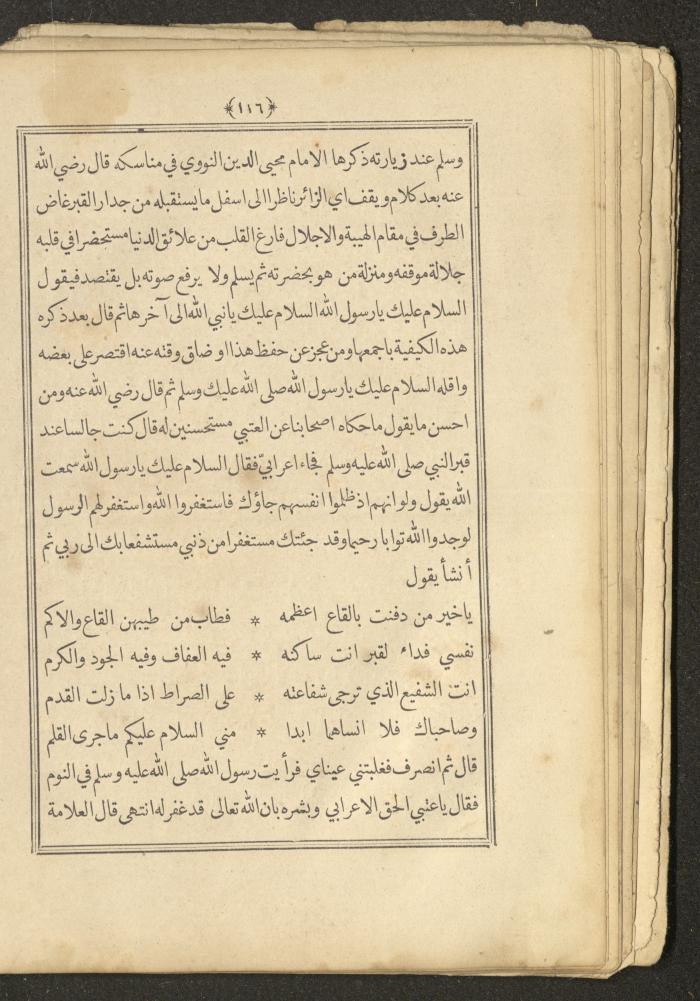 ﴿١١٦﴾
وسلم عند زيارته ذكرها الامام محيي الدين النووي في مناسكه قال رضي الله
عنه بعد كلام ويقف اي الزائر ناظرا الى اسفل ما يستقبله من جدار القبر غاض
الطرف في مقام الهيبة والاجلال فارغ القلب من علائق الدنيا مستحضرا في قلبه
جلالة موقفه ومنزلة من هو بحضرته ثم يسلم ولا يرفع صوته بل يقتصد فيقول
السلام عليك يا رسول الله السلام عليك يا نبي الله الى آخرها ثم قال بعد ذكره
هذه الكيفية باجمعها ومن عجز عن حفظ هذا او ضاق وقته عنه اقتصر على بعضه
واقله السلام عليك يا رسول الله صلى الله عليك وسلم ثم قال رضي الله عنه ومن
احسن ما يقول ما حكاه اصحابنا عن العتبي مستحسنين له قال كنت جالسا عند
قبر النبي صلى الله عليه وسلم فجاء اعرابيّ فقال السلام عليك يا رسول الله سمعت
الله يقول ولو انهم اذ ظلموا انفسهم جاؤك فاستغفروا الله واستغفر لهم الرسول
لوجدوا الله توابا رحيما وقد جئتك مستغفرا من ذنبي مستشفعا بك الى ربي ثم
أنشأ يقول
يا خير من دفنت بالقاع اعظمه * فطاب من طيبهن القاع والاكم
نفسي فداء لقبر انت ساكنه * فيه العفاف وفيه الجود والكرم
انت الشفيع الذي ترجى شفاعته * على الصراط اذا ما زلت القدم
وصاحباك فلا انساهما ابدا * مني السلام عليكم ما جرى القلم
قال ثم انصرف فغلبتني عيناي فرأيت رسول الله صلى الله عليه وسلم في النوم
فقال يا عتبي الحق الاعرابي وبشره بان الله تعالى قد غفر له انتهى قال العلامة